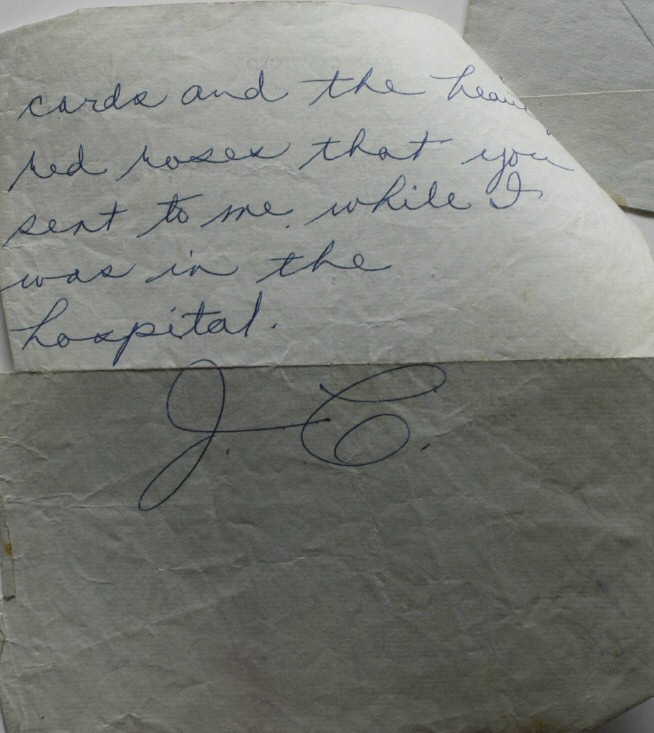 cards and the
red roses that you
sent to me while I
was in the
hospital.
J. C.